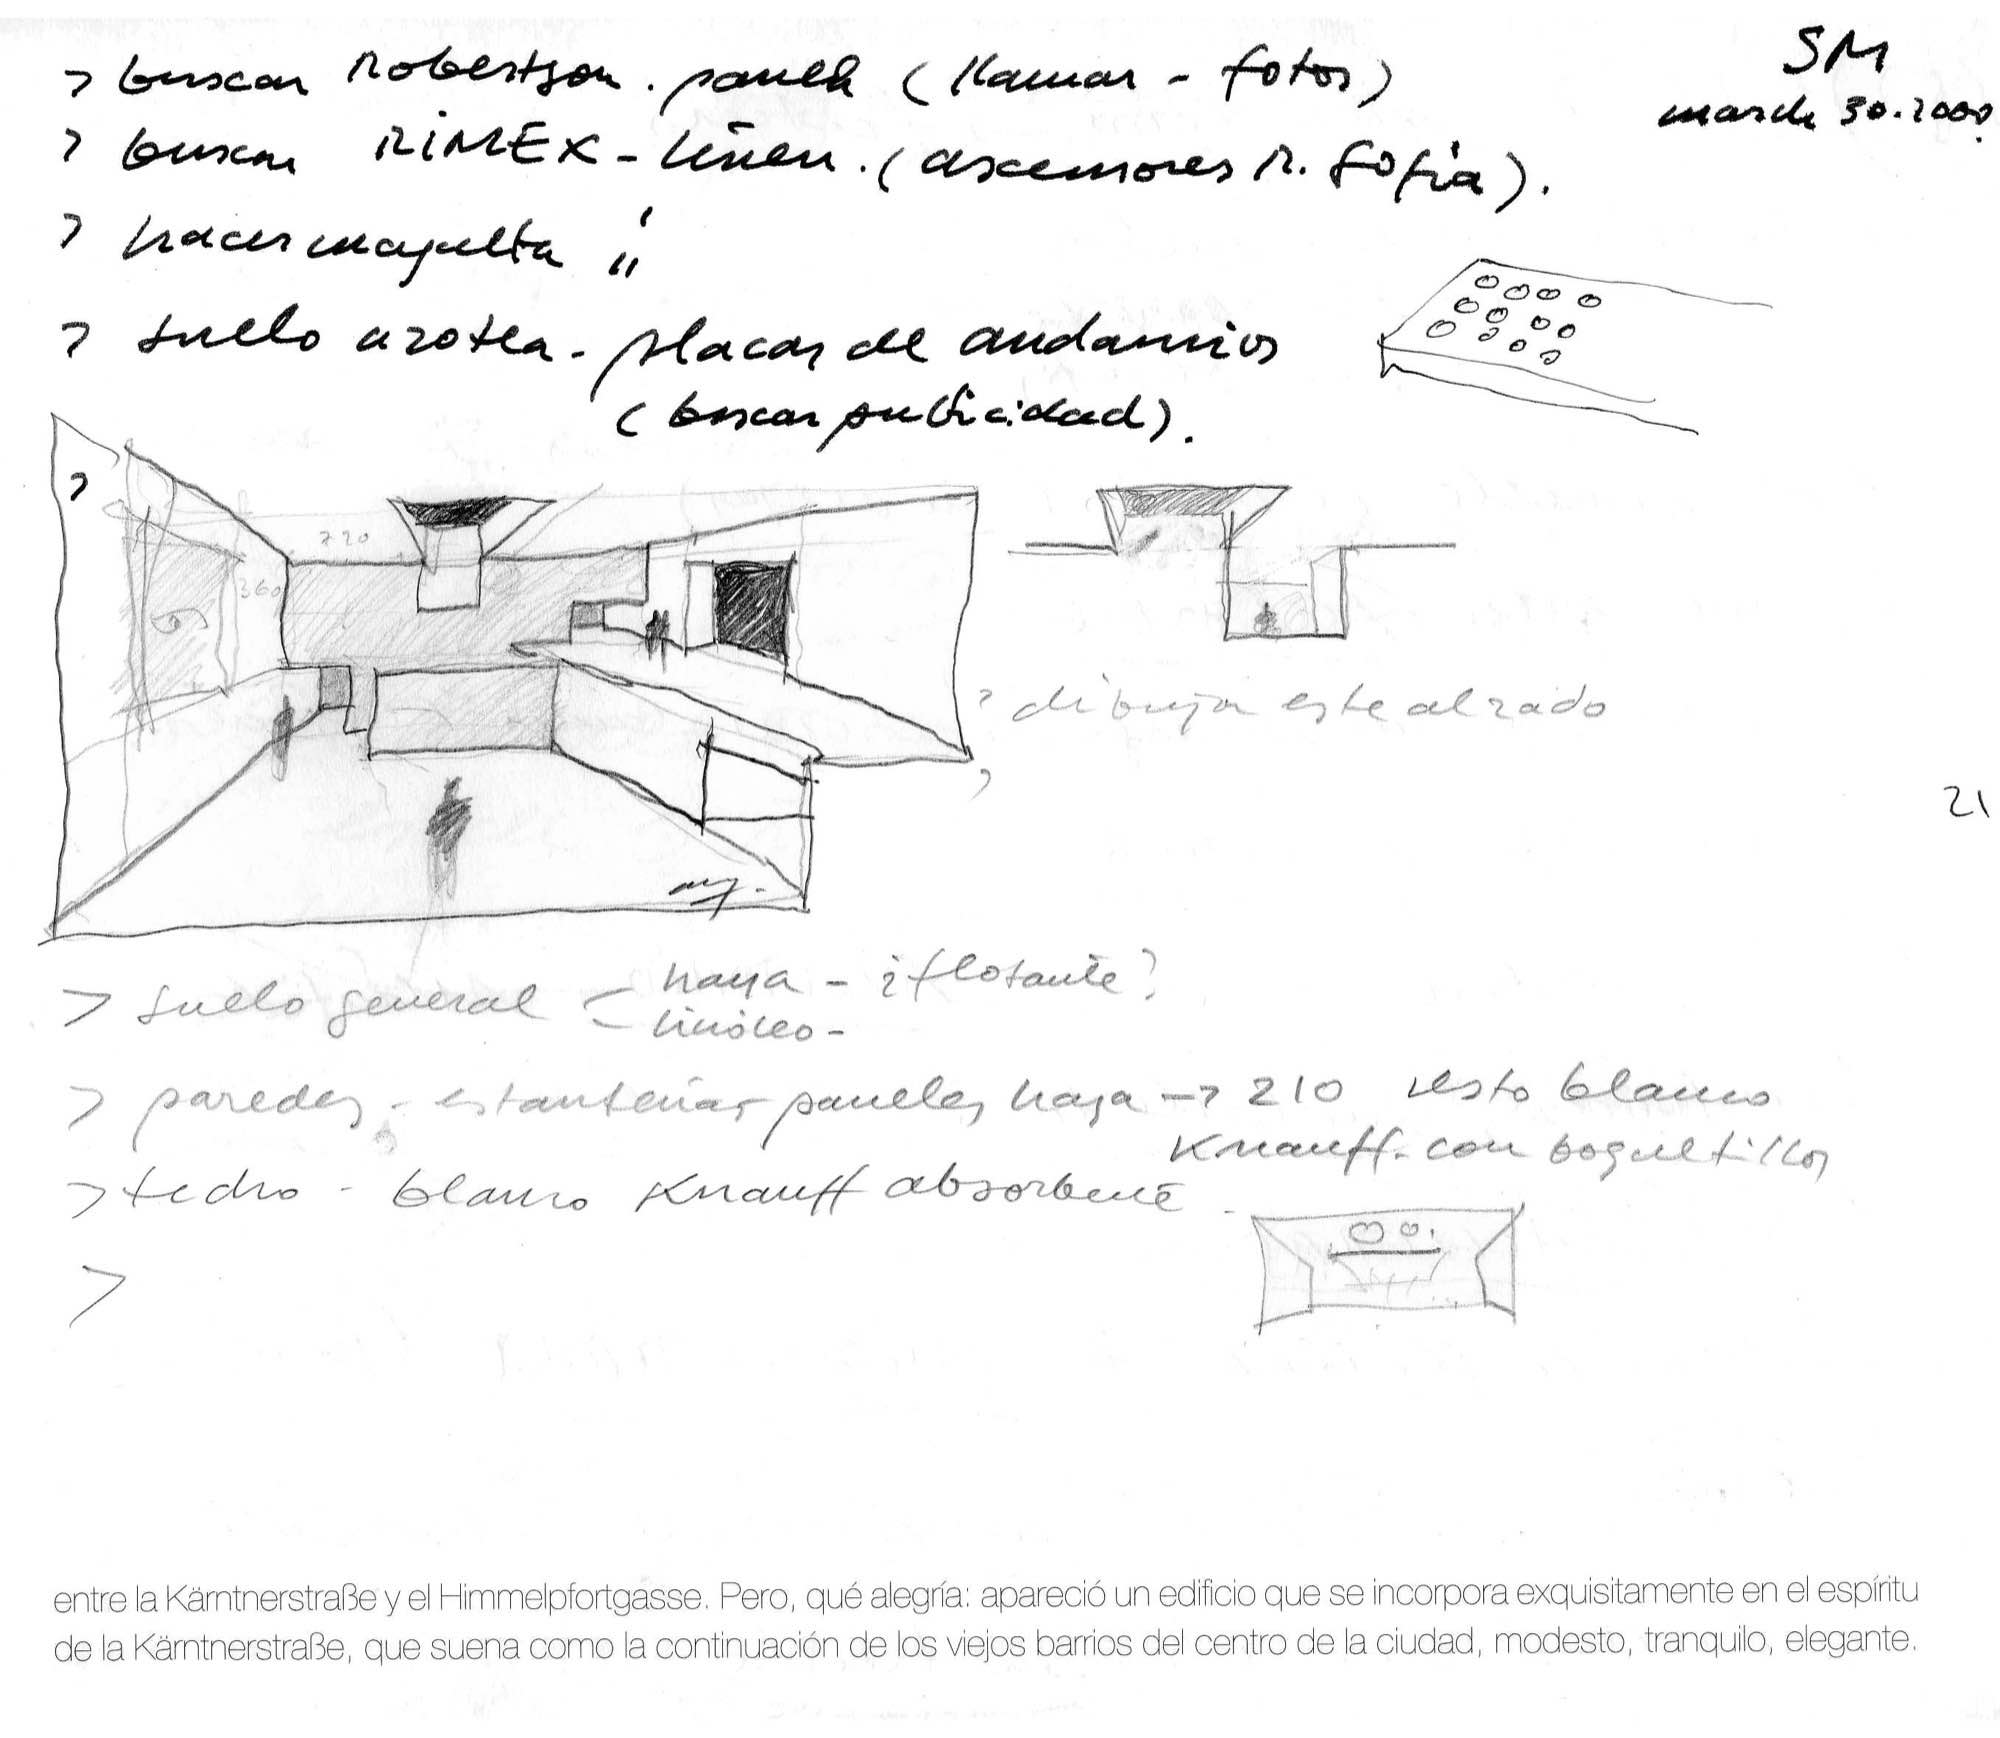 SM
march 30.2000.
> buscar Robertson. panels (llamar - fotos)
> buscar RiMEX - Linen. (ascensores R. Sofia).
> hacer maqueta ¡¡
> suelo azotea - placas de andamios
(buscar publicidad).
>
720
360
> dibujar este alzado
>
21
> suelo general < haya - ¿flotante?
linóleo -
> paredes - paneles haya -> 210 resto blanco
Knauff. con boquetillos
> techo - blanco Knauff absorbente
>
entre la Kärntnerstraße y el Himmelpfortgasse. Pero, qué alegría: apareció un edificio que se incorpora exquisitamente en el espíritu
de la Kärntnerstraße, que suena como la continuación de los viejos barrios del centro de la ciudad, modesto, tranquilo, elegante.